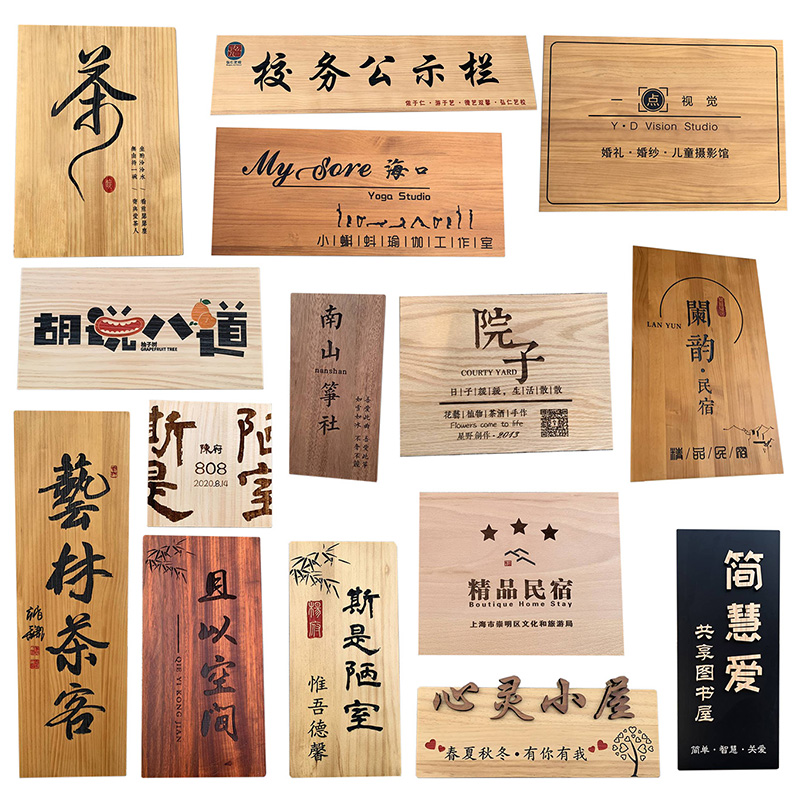 茶
坐酌泠泠水
看煎瑟瑟塵
無由持一碗
寄與愛茶人
校务公示栏
依于仁·游于艺·德艺双馨·弘仁艺校
一点视觉
Y·D Vision Studio
婚礼·婚纱·儿童摄影馆
My Sore 海口
Yoga Studio
小|蝌|蚪|瑜|伽|工|作|室
胡说八道
柚子树
GRAPEFRUIT TREE
南山箏社
nanshan
院子
COURTY YARD
日|子|緩|緩,生|活|散|散
花藝|植物|茶酒|手作
Flowers come to life
星野創作·2013
LAN YUN
闌韵·民宿
精/品/民/宿
藝林茶客
斯是陋室
陳府
808
2020.8.14
且以空间
QIE YI KONG JIAN
斯是陋室
惟吾德馨
楊府
精品民宿
Boutique Home Stay
上海市崇明区文化和旅游局
心灵小屋
春夏秋冬·有你有我
简慧爱
共享图书屋
简单·智慧·关爱